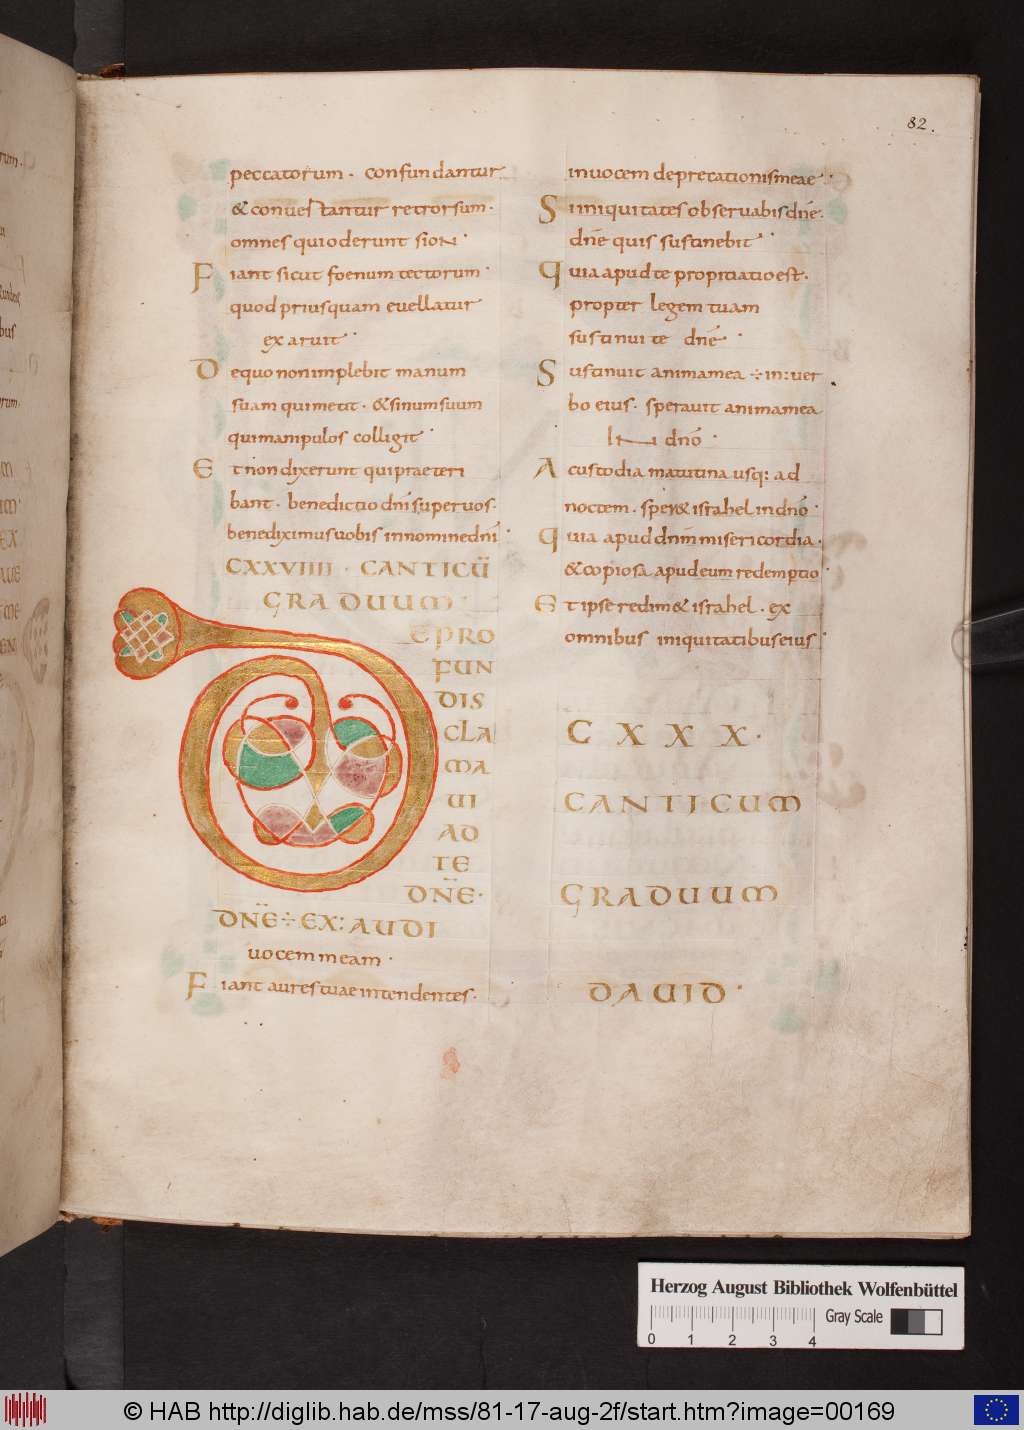 82.
peccatorum. confundantur
& conuertantur retrorsum.
omnes qui oderunt sion.
Fiant sicut foenum tectorum.
quod priusquam euellatur
exaruit.
De quo non implebit manum
suam qui metit. & sinum suum
qui manipulos colligit.
Et non dixerunt qui praeteri
bant. benedictio dñi super uos.
benediximus uobis in nomine dñi.
CXXVIIII. CANTICŨ
GRADUUM.
DEPRO
FUN
DIS
CLA
MA
UI
AD
TE
DÑE.
DÑE÷EX:AUDI
uocem meam.
Fiant aures tuae intendentes.
in uocem deprecationis meae.
Si iniquitates obseruabis dñe.
dñe quis sustinebit.
Quia apud te propitiatio est.
propter legem tuam
sustinui te dñe.
Sustinuit anima mea ÷in:uer
bo eius. sperauit anima mea
IN dño.
A custodia matutina usq: ad
noctem. sper& israhel in dño.
Quia apud dñm misericordia.
& copiosa apud eum redemptio.
Et ipse redim& israhel. ex
omnibus iniquitatibus eius.
CXXX.
CANTICUM
GRADUUM
DAUID.
Herzog August Bibliothek Wolfenbüttel
Gray Scale
0 1 2 3 4
© HAB http://diglib.hab.de/mss/81-17-aug-2f/start.htm?image=00169